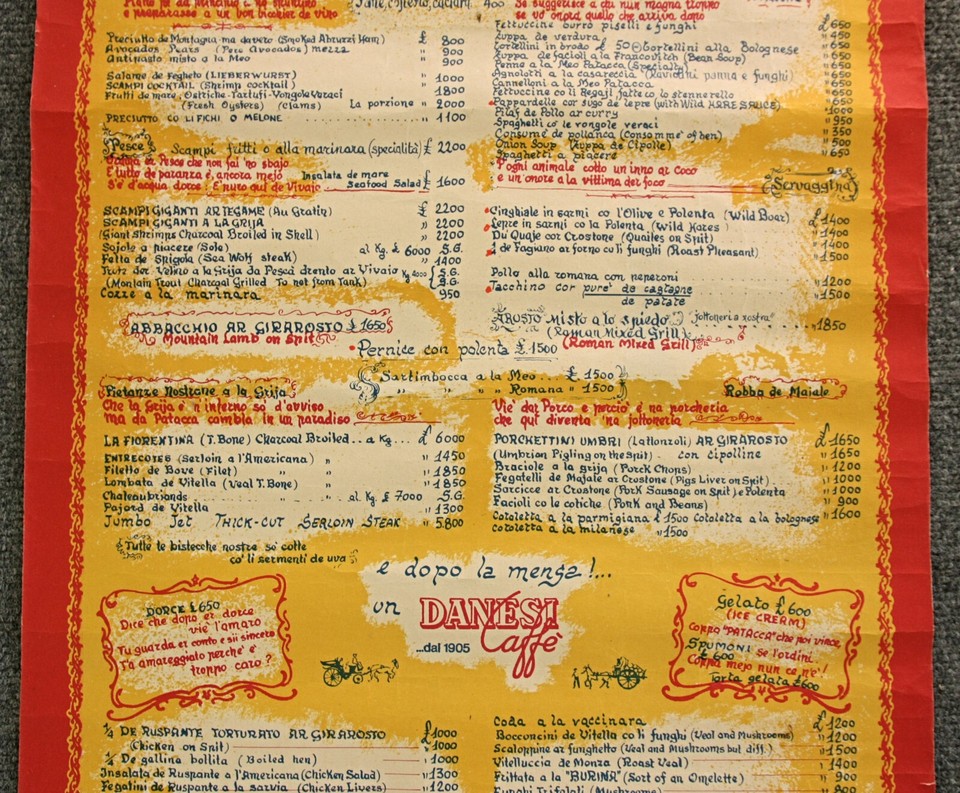 e prendarasse a un bon bicchier de vino
400
Se suggerisce a chi nun magna troppo
se vò onorà quello che ariva dopo
Preciutto de Montagna ma davero (Smoked Abruzzi Ham) £ 800
Avocados Pears (Pere Avocados) mezza " 900
Antipasto misto a la Meo " 900
Salame de Fegheto (LIEBERWURST) " 1000
SCAMPI COCKTAIL (Shrimp cocktail) "
Frutti de mare, Ostriche-Tartufi-Vongole Veraci 1800
(Fresh Oysters) (Clams) La porzione " 2000
PRECIUTTO CO LI FICHI O MELONE " 1100
Fettuccine burro piselli e funghi £ 650
Zuppa de verdura " 450
Tortellini in brodo £ 500 Tortellini alla Bolognese " 650
Zuppa de facioli a la Francovich (Bean Soup)
Penne a la Meo Patacca (Specialty)
Agnolotti a la casareccia (Raviolini panna e funghi)
Cannelloni a la Meo Patacca
Fettuccine co li Regali fatte co lo stennerello
Pappardelle cor sugo de lepre (with Wild HARE SAUCE)
Pilaf de Pollo ar curry
Spaghetti co le vongole veraci " 950
Consumè de pollanca (Consommè of hen) " 350
Onion Soup (Zuppa de Cipolle) " 500
Spaghetti a piacere " 650
Pesce
Scampi fritti o alla marinara (specialità) £ 2200
Magna er Pesce che non fai 'no sbajo
È tutto de paranza e, ancora mejo
S'è d'acqua dorce: È puro qui de Vivajo
Insalata de mare
Seafood Salad £ 1600
SCAMPI GIGANTI AR TEGAME (Au Gratin) £ 2200
SCAMPI GIGANTI A LA GRIJA " 2200
(Giant Shrimps Charcoal Broiled in Shell) " 2200
Sojole a piacere (Sole) al Kg. £ 6000 S.G.
Fetta de Spigola (Sea Wolf steak) " 1400
Trute der Velino a la Grija da Pesca drento ar Vivaio Kg 4000 S.G.
(Montain Trout Charcoal Grilled To not from Tank) S.G.
Cozze a la marinara 950
'Pogni animale cotto un inno ar Coco
e un'onore a la vittima der foco
Servaggina
Cinghiale in sarmi co l'Olive e Polenta (Wild Boar) £ 1400
Lepre in sarmi co la Polenta (Wild Hares) " 1400
Du' Quaje cor Crostone (Quailes on Spit) " 1500
¼ de Fagiano ar forno cu li funghi (Roast Pheasant) " 1400
Pollo alla romana con peperoni " 1200
Tacchino cor purè de castagne " 1500
de patate
ABBACCHIO AR GIRAROSTO £ 1650
Mountain Lamb on Spit
AROSTO Misto a lo spiedo
"jottoneria nostra" 1850
(Roman Mixed Grill)
(Roman Mixed Grill)
Pernice con polenta £ 1500
Sartimbocca a la Meo... £ 1500
" " " Romana " 1500
Pietanze Nostrane a la Grija
Che la Grija è 'n inferno so' d'avviso
ma da Patacca cambia in un paradiso
Robba de Maiale
Vie' dar Porco e perciò è na porcheria
che qui diventa 'na jottoneria
LA FIORENTINA (T. Bone) Charcoal Broiled.. a Kg... £ 6000
ENTRECOTES (Serloin a l'Americana) " " 1450
Filetto de Bove (Filet) " " 1850
Lombata de Vitella (Veal T. Bone) " 1850
Chateaubriands al Kg. £ 7000 S.G.
Pajard de Vitella " 1300
Jumbo Jet THICK-CUT SERLOIN STEAK " 5.800
Tutte le bistecche nostre so' cotte
co' li sermenti de uva
PORCHETTINI UMBRI (Lattonzoli) AR GIRAROSTO £ 1650
(Umbrian Pigling on the Spit) - con cipolline " 1650
Braciole a la grija (Porck Chops) " 1200
Fegatelli de Majale ar Crostone (Pigs Liver on Spit) " 1000
Sarcicce ar Crostone (Pork Sausage on Spit) e Polenta " 1000
Facioli co le cotiche (Pork and Beans) " 900
Cotoletta a la parmigiana £ 1500 Cotoletta a la bolognese " 1600
Cotoletta a la milanese " 1500
e dopo la mensa!...
un DANESI
Caffè
...dal 1905
DORCE £ 650
Dice che dopo er dorce
vie' l'amaro
Tu guarda er conto e sii sincero
T'à amareggiato perchè è
troppo caro?
Gelato £ 600
(ICE CREAM)
Coppa "PATACCA" che poi vince
SPUMONI se l'ordini
£ 600
Coppa mejo nun ce n'è!
Torta gelata £ 600
¼ DE RUSPANTE TORTURATO AR GIRAROSTO £ 1000
(Chicken on Spit) " 1000
¼ De gallina bollita (Boiled hen) " 1000
Insalata de Ruspante a l'Americana (Chicken Salad) " 1300
Fegatini de Ruspante a la sarvia (Chicken Livers) " 1200
Coda a la vaccinara £ 1200
Bocconcini de Vitella co li funghi (Veal and Mushrooms) " 1200
Scaloppine ar funghetto (Veal and Mushrooms but diff.) " 1500
Vitelluccia de Monza (Roast Veal) " 1400
Frittata a la "BURINA" (Sort of an Omelette) " 900
Funghi Trifolati (Mushrooms) " 800